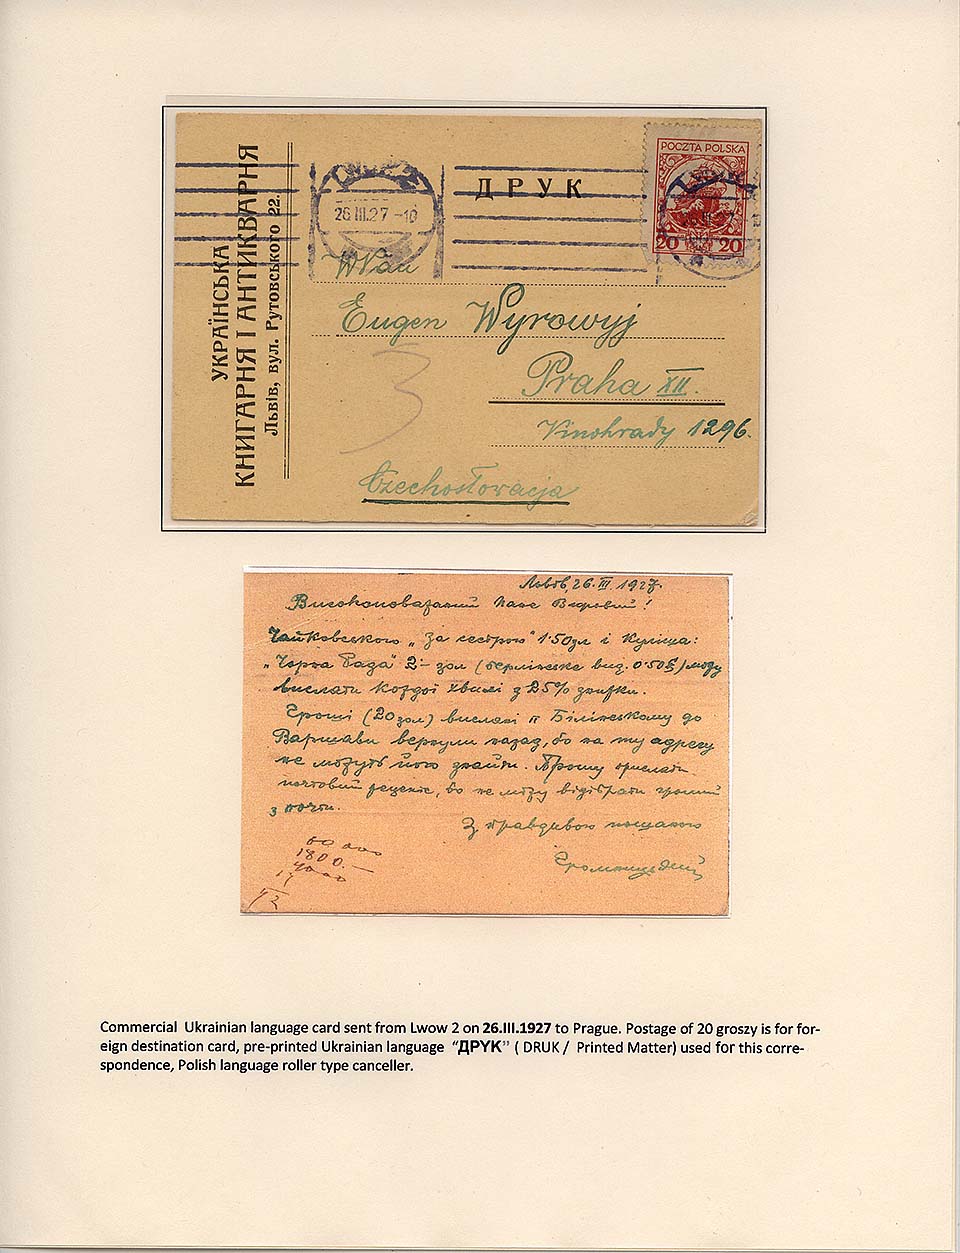 УКРАЇНСЬКА
КНИГАРНЯ І АНТИКВАРНЯ
Львів, вул. Рутовського 22.
26 III.27 -10
ДРУК
POCZTA POLSKA
20 20
WPan
Eugen Wyrowyj
Praha XII.
Vinohrady 1296.
3
Czechosłowacja
Львів, 26. III. 1927.
Високоповажаний Пане Вировий!
Чайковського „За сестрою" 1·50 зл і Куліша:
„Чорна Рада" 2·– зол (берлінське вид. 0·50 $) можу
вислати кождої хвилі з 25% знижки.
Гроші (20 зол) вислані п Білінському до
Варшави вернули назад, бо на ту адресу
не можуть його знайти. Прошу прислати
почтовий рецепіс, бо не можу відібрати грошей
з почти.
З правдивою пошаною
1800.–
Commercial Ukrainian language card sent from Lwow 2 on 26.III.1927 to Prague. Postage of 20 groszy is for for-
eign destination card, pre-printed Ukrainian language “ДРУК” ( DRUK / Printed Matter) used for this corre-
spondence, Polish language roller type canceller.